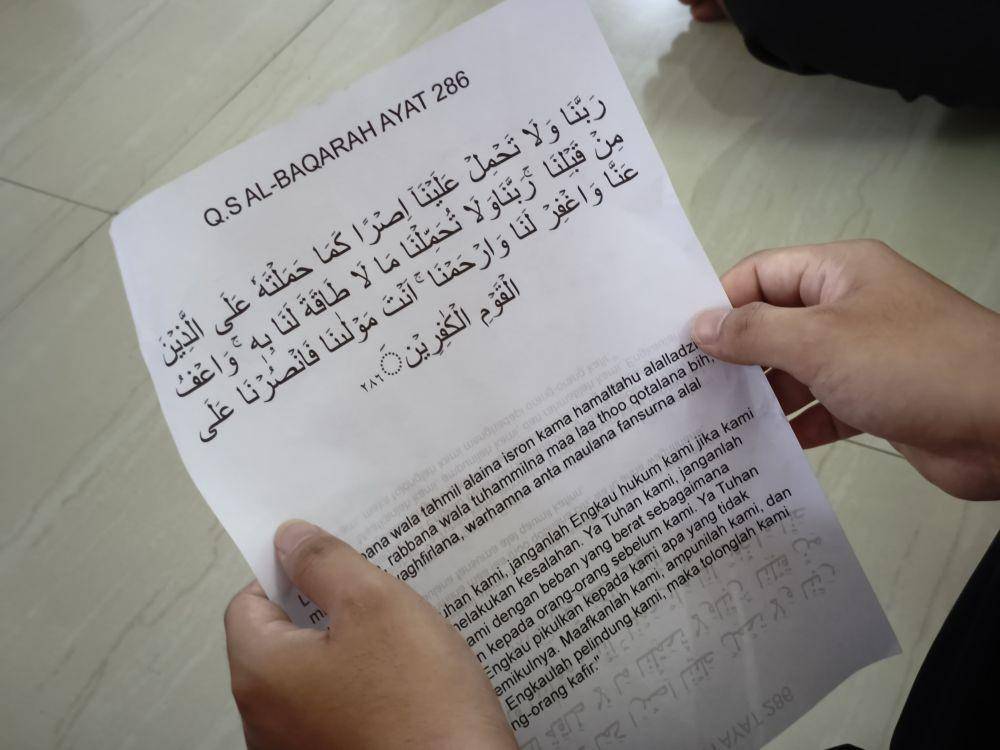 Q.S AL-BAQARAH AYAT 286
رَبَّنَا وَلَا تَحْمِلْ عَلَيْنَآ اِصْرًا كَمَا حَمَلْتَهٗ عَلَى الَّذِيْنَ
مِنْ قَبْلِنَا ۚ رَبَّنَا وَلَا تُحَمِّلْنَا مَا لَا طَاقَةَ لَنَا بِهٖ ۚ وَاعْفُ
عَنَّا وَاغْفِرْ لَنَا وَارْحَمْنَا ۚ اَنْتَ مَوْلٰىنَا فَانْصُرْنَا عَلَى
الْقَوْمِ الْكٰفِرِيْنَ ۝ ٢٨٦
wala tahmil alaina isron kama hamaltahu alalladzi
rabbana wala tuhammilna maa laa thoo qotalana bih,
warhamna anta maulana fansurna alal
kami, janganlah Engkau hukum kami jika kami
melakukan kesalahan. Ya Tuhan kami, janganlah
dengan beban yang berat sebagaimana
kepada orang-orang sebelum kami. Ya Tuhan
Engkau pikulkan kepada kami apa yang tidak
Maafkanlah kami, ampunilah kami, dan
Engkaulah pelindung kami, maka tolonglah kami
kafir."
AYAT 286